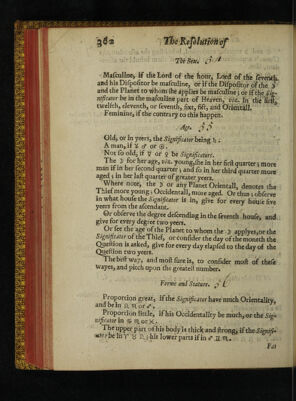 362 The Resolution of
The Sex. 34
Masculine, if the Lord of the hour, Lord of the seventh
and his Dispositor be masculine, or if the Dispositor of the ☽
and the Planet to whom she applies be masculine; or if the Sig-
nificator be in the masculine part of Heaven, viz. In the first,
twelfth, eleventh, or seventh, sixt, fift, and Orientall.
Feminine, if the contrary to this happen.
Age. 35
Old, or in years, the Significator being ♄:
A man, if ♃ ♂ or ☉.
Not so old, if ♀ or ☿ be Significators.
The ☽ for her age, viz. young, she in her first quarter; more
man if in her second quarter; and so in her third quarter more
aged; in her last quarter of greater years.
Where note, the ☽ or any Planet Orientall, denotes the
Thief more young; Occidentall, more aged. Or thus: observe
in what house the Significator is in, give for every house five
years from the ascendent.
Or observe the degree descending in the seventh house, and
give for every degree two years.
Or see the age of the Planet to whom the ☽ applyes, or the
Significator of the Thief, or consider the day of the moneth the
Question is asked, give for every day elapsed to the day of the
Question two years.
The best way, and most sure is, to consider most of these
wayes, and pitch upon the greatest number.
Forme and Stature. 36
Proportion great, if the Significator have much Orientality,
and be in
Proportion little, if his Occidentality be much, or the Sig-
nificator in
The upper part of his body is thick and strong, if the Signifi-
be in ♈ ♉ ♌; his lower parts if in
Fat